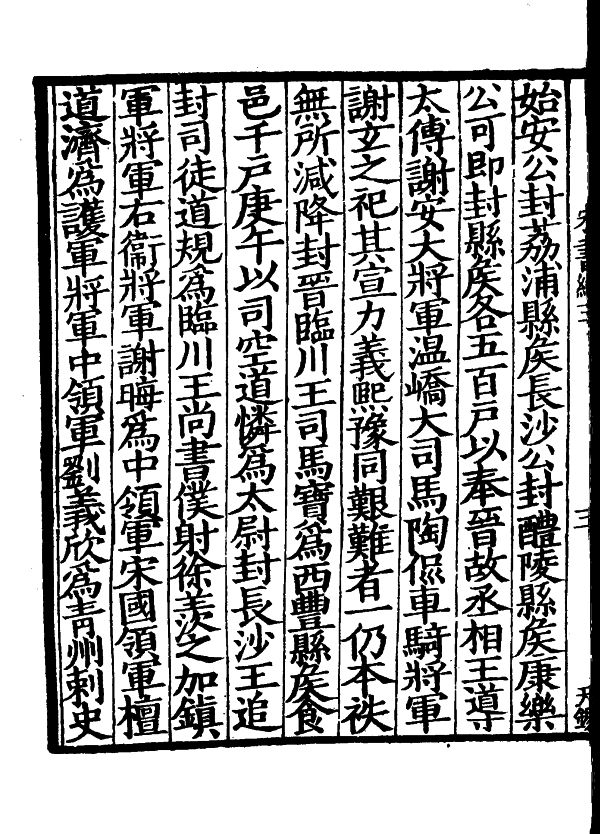 始安公封荔浦縣侯長沙公封醴陵縣侯康樂
公可即封縣侯各五百戸以奉晉故丞相王導
太傅謝安大將軍温嶠大司馬陶侃車騎將軍
謝玄之祀其宣力義熙豫同艱難者一仍本秩
無所減降封晉臨川王司馬寶爲西豐縣侯食
邑千戸庚午以司空道憐爲太尉封長沙王追
封司徒道規爲臨川王尚書僕射徐羨之加鎮
軍將軍右衞將軍謝晦爲中領軍宋國領軍檀
道濟爲護軍將軍中領軍劉義欣爲青州刺史